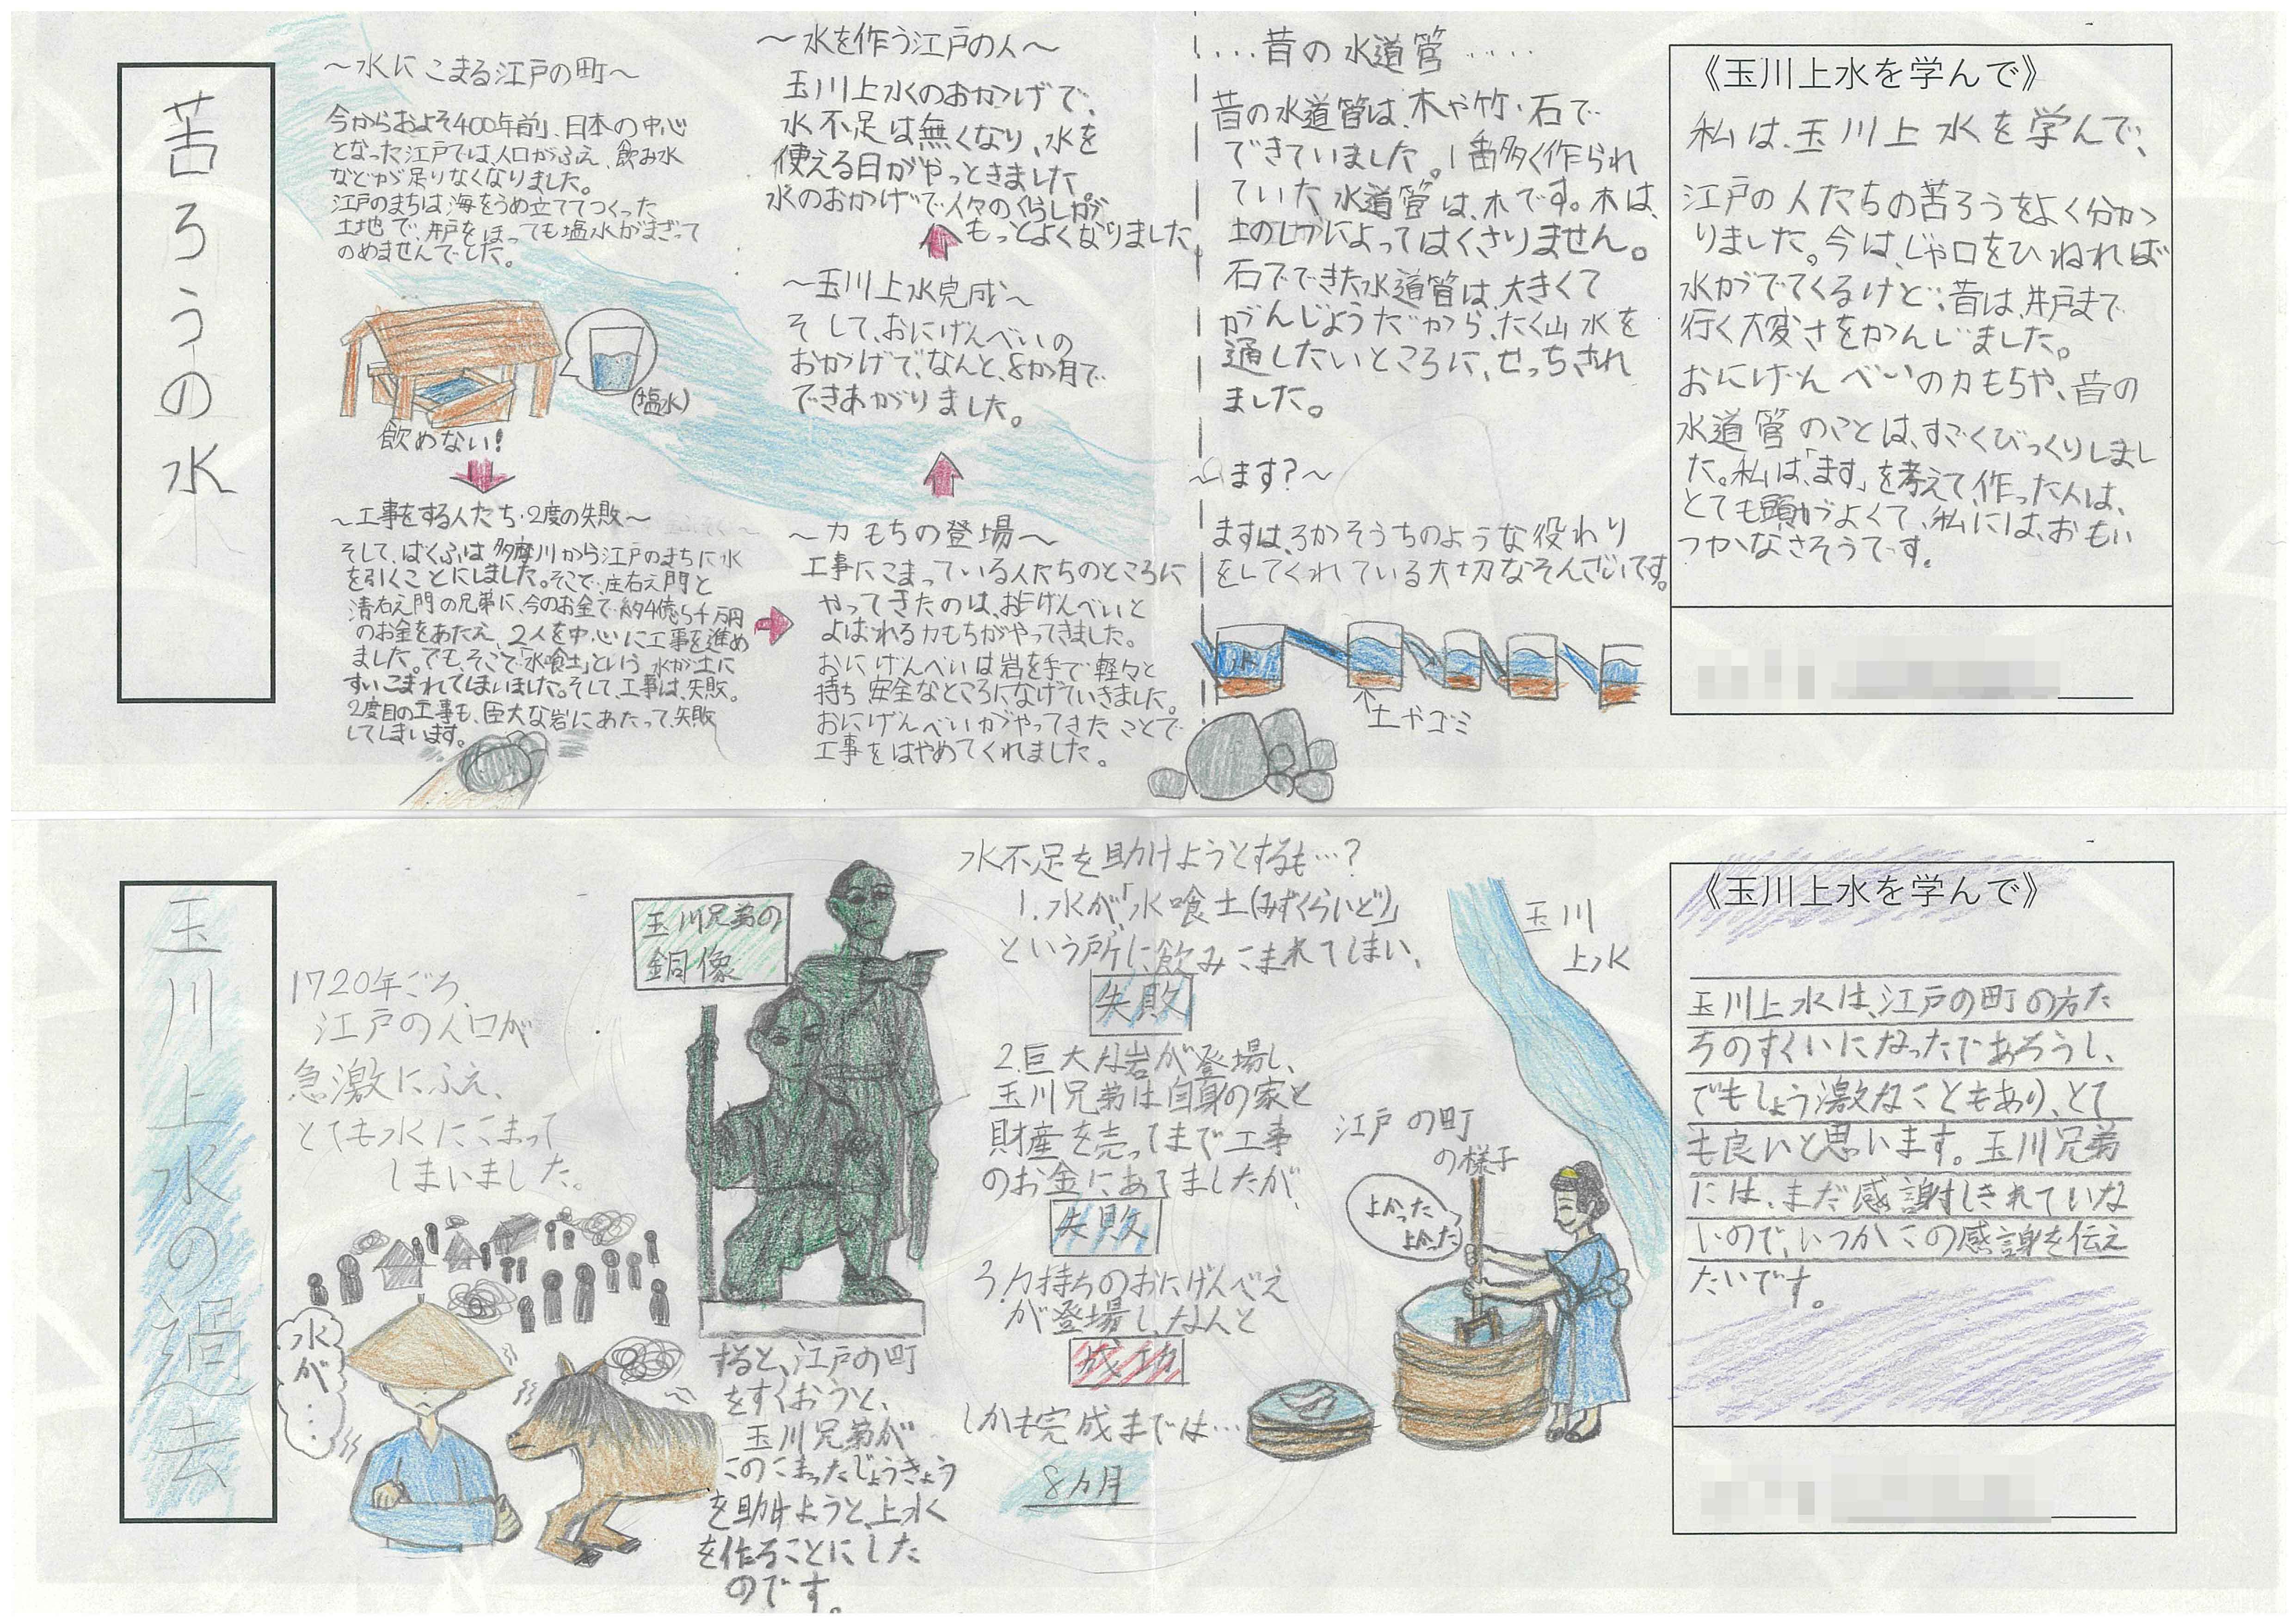 苦ろうの水
～水にこまる江戸の町～
今からおよそ400年前、日本の中心
となった江戸では、人口がふえ、飲み水
などが足りなくなりました。
江戸のまちは、海をうめ立ててつくった
土地で、井戸をほっても塩水がまざって
のめませんでした。
(塩水)
飲めない!
～工事をする人たち・2度の失敗～
そして、ばくふは、多摩川から江戸のまちに水
を引くことにしました。そこで、庄右え門と
清右え門の兄弟に、今のお金で約4億5千万円
のお金をあたえ、2人を中心に工事を進め
ました。でも、そこで「水喰土」という、水が土に
すいこまれてしまいました。そして、工事は、失敗。
2度目の工事も、巨大な岩にあたって、失敗
してしまいます。
～力もちの登場～
工事にこまっている人たちのところに
やってきたのは、おにげんべいと
よばれる力もちがやってきました。
おにげんべいは岩を手で軽々と
持ち安全なところになげていきました。
おにげんべいがやってきたことで
工事をはやめてくれました。
～玉川上水完成～
そして、おにげんべいの
おかげで、なんと、8か月で
できあがりました。
～水を作う江戸の人～
玉川上水のおかげで、
水不足は無くなり、水を
使える日がやっときました。
水のおかげで人々のくらしが
もっとよくなりました。
....昔の水道管....
昔の水道管は、木や竹・石で
できていました。1番多く作られ
ていた水道管は、木です。木は、
土のしかによってはくさりません。
石でできた水道管は、大きくて
がんじょうだから、たく山水を
通したいところに、せっちされ
ました。
～ます?～
ますは、ろかそうちのような役わり
をしてくれている大切なそんざいです。
土やゴミ
《玉川上水を学んで》
私は、玉川上水を学んで、
江戸の人たちの苦ろうをよく分か
りました。今は、じゃ口をひねれば
水がでてくるけど、昔は、井戸まで
行く大変さをかんじました。
おにげんべいの力もちや、昔の
水道管のことは、すごくびっくりしまし
た。私は、「ます」を考えて、作った人は、
とても頭がよくて、私には、おもい
つかなさそうです。
玉川上水の過去
1720年ごろ、
江戸の人口が
急激にふえ、
とても水にこまって
しまいました。
水が…
玉川兄弟の
銅像
すると、江戸の町
をすくおうと、
玉川兄弟が
このこまったじょうきょう
を助けようと、上水
を作ることにした
のです。
水不足を助けようとするも…?
1.水が、「水喰土(みずくらいど)」
という所に飲みこまれてしまい、
失敗
2.巨大な岩が登場し、
玉川兄弟は自身の家と
財産を売ってまで工事
のお金にあてましたが、
失敗
3.力持ちのおにげんべえ
が登場し、なんと
成功
しかも完成までは…
8カ月
玉川
上水
江戸の町
の様子
よかった
よかった
《玉川上水を学んで》
玉川上水は、江戸の町の方た
ちのすくいになったであろうし、
でもしょう激なこともあり、とて
も良いと思います。玉川兄弟
には、まだ感謝しきれていな
いので、いつかこの感謝を伝え
たいです。